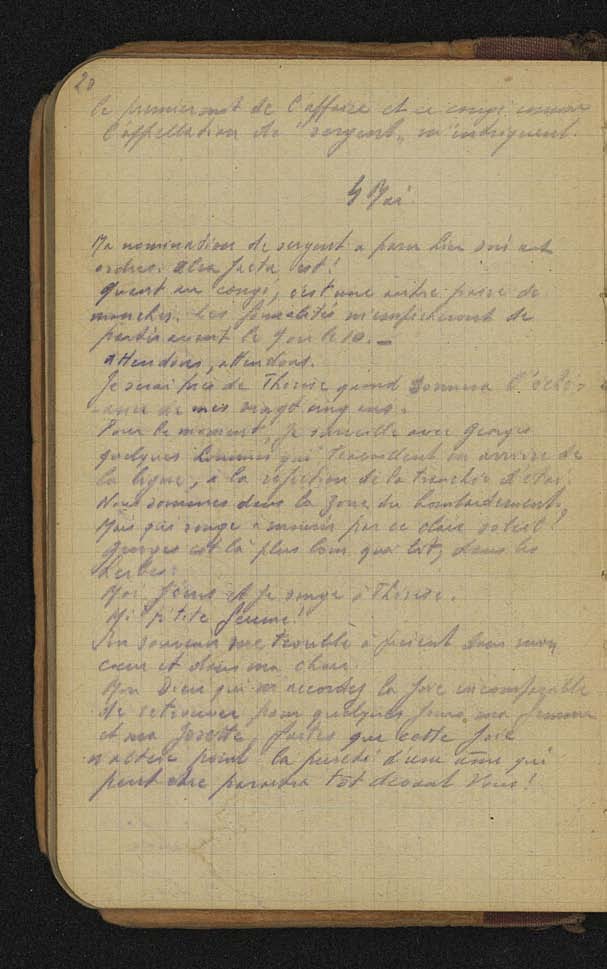 20
le premier mot de l'affaire et ce congé comme
l'appellation de "sergent" m'intriguent.
4 Mai
Ma nomination de sergent a paru hier soir aux
ordres. Alea jacta est!
Quant au congé, c'est une autre paire de
manches. Les formalités m'empêcheront de
partir avant le 9 ou le 10. —
Attendons, attendons.
Je serai près de Thérèse quand sonnera l'éché-
ance de mes vingt cinq ans.
Pour le moment, je surveille avec Georges
quelques hommes qui travaillent en arrière de
la ligne, à la réfection de la tranchée d'
Nous sommes dans la zone du bombardement.
Mais qui songe à mourir par ce clair soleil?
Georges est là plus loin qui lit, dans les
herbes.
Moi j'écris et je songe à Thérèse.
Ma p'tite femme!
Son souvenir me trouble à présent dans mon
cœur et dans ma chair.
Mon Dieu qui m'accordez la joie incomparable
de retrouver pour quelques jours ma femme
et ma Josette, faites que cette joie
n'altère point la pureté d'une âme qui
peut être paraitra tôt devant Vous!